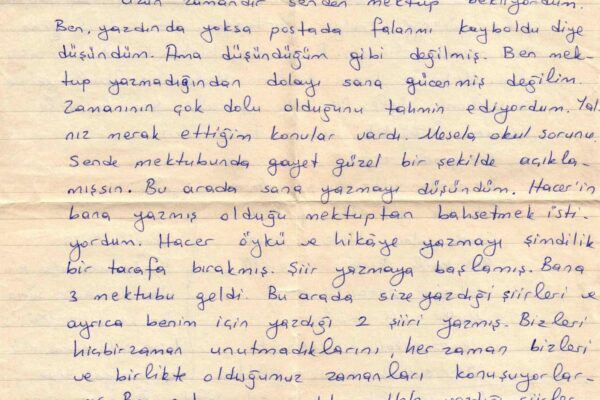 Uzun zamandır senden mektup bekliyordum.
Ben, yazdında yoksa postada falanmı kayboldu diye
düşündüm. Ama düşündüğüm gibi değilmiş. Ben mek-
tup yazmadığından dolayı sana gücenmiş değilim.
Zamanının çok dolu olduğunu tahmin ediyordum. Yal-
nız merak ettiğim konular vardı. Mesela okul sorunu.
Sende mektubunda gayet güzel bir şekilde açıkla-
mışsın. Bu arada sana yazmayı düşündüm. Hacer'in
bana yazmış olduğu mektuptan bahsetmek isti-
yordum. Hacer öykü ve hikâye yazmayı şimdilik
bir tarafa bırakmış. Şiir yazmaya başlamış. Bana
3 mektubu geldi. Bu arada size yazdığı şiirleri ve
ayrıca benim için yazdığı 2 şiiri yazmış. Bizleri
hiçbirzaman unutmadıklarını, her zaman bizleri
ve birlikte olduğumuz zamanları konuşuyorlar-